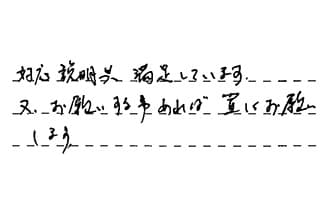 対応、説明共、満足しています。
又、お願いする事あれば宜しくお願い
します。